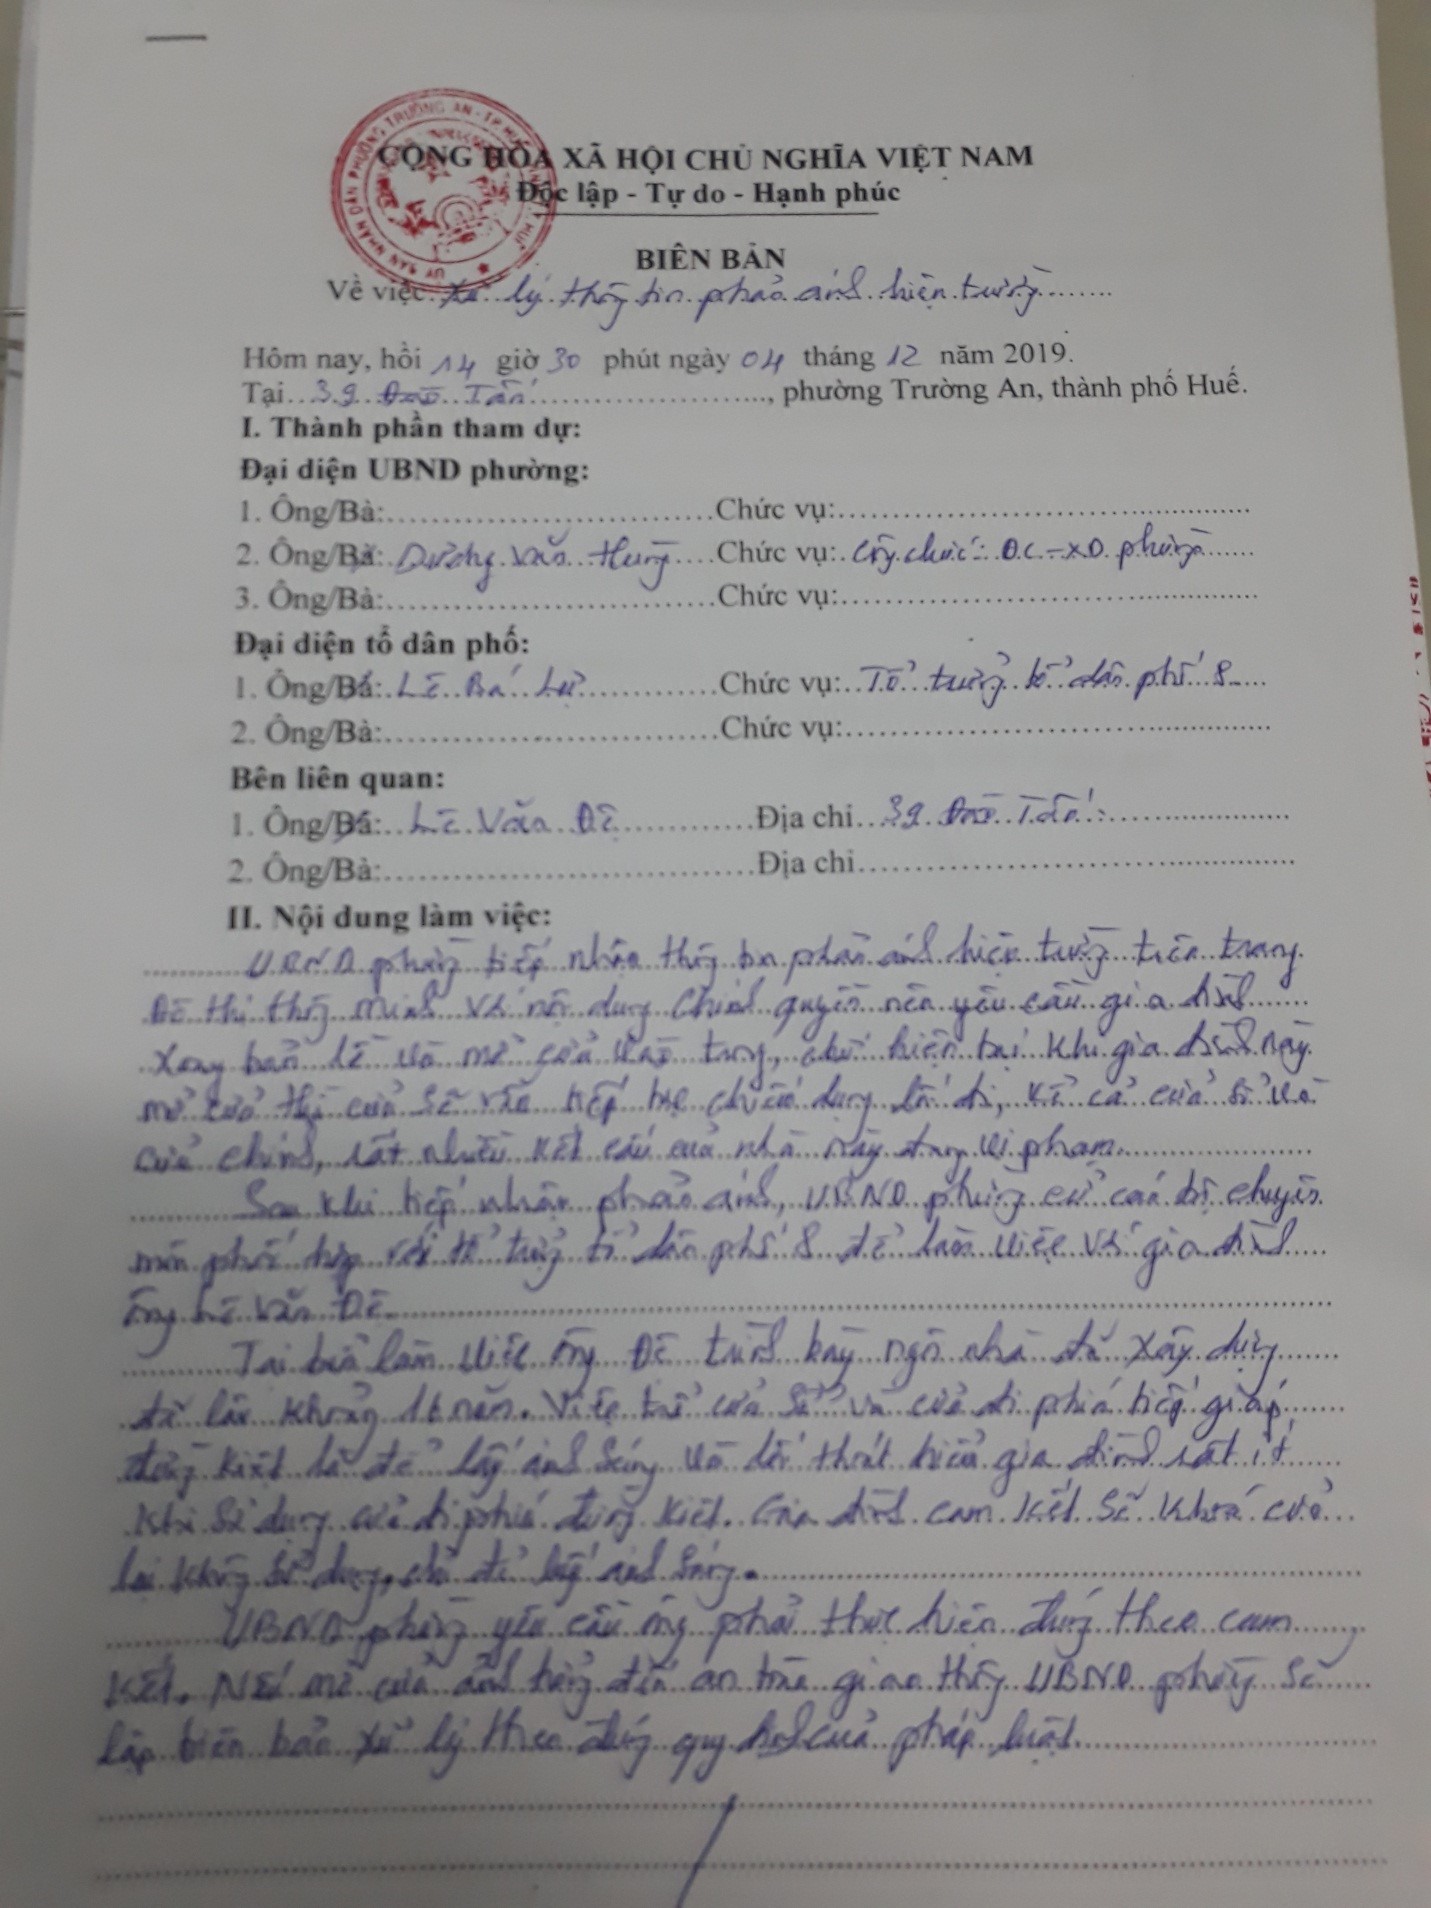 ỦY BAN NHÂN DÂN PHƯỜNG TRƯỜNG AN - TP HUẾ
CỘNG HÒA XÃ HỘI CHỦ NGHĨA VIỆT NAM
Độc lập - Tự do - Hạnh phúc
BIÊN BẢN
Về việc: Xử lý thông tin phản ánh hiện trường
Hôm nay, hồi 14 giờ 30 phút ngày 04 tháng 12 năm 2019.
Tại 39 Đào Tấn, phường Trường An, thành phố Huế.
I. Thành phần tham dự:
Đại diện UBND phường:
1. Ông/Bà: Chức vụ:
2. Ông/Bà: Dương Văn Hưng Chức vụ: Công chức: Đ.C-X.D phường
3. Ông/Bà: Chức vụ:
Đại diện tổ dân phố:
1. Ông/Bà: Lê Bá Chức vụ: Tổ trưởng tổ dân phố 8
2. Ông/Bà: Chức vụ:
Bên liên quan:
1. Ông/Bà: Lê Văn Đê Địa chỉ 39 Đào Tấn
2. Ông/Bà: Địa chỉ
II. Nội dung làm việc:
UBND phường tiếp nhận thông tin phản ánh hiện trường trên trang
Đô thị thông minh với nội dung Chính quyền nên yêu cầu gia đình
xoay bản lề và mở cửa vào trong, chứ hiện tại khi gia đình này
mở cửa thì cửa sẽ vẫn tiếp tục chiếm dụng lối đi, kể cả cửa sổ và
cửa chính, rất nhiều kết cấu của nhà này đang vi phạm.
Sau khi tiếp nhận phản ánh, UBND phường cử cán bộ chuyên
môn phối hợp với tổ trưởng tổ dân phố 8 để làm việc với gia đình
ông Lê Văn Đê.
Tại buổi làm việc ông Đê trình bày ngôi nhà đã xây dựng
đã lâu khoảng 16 năm. Việc trổ cửa sổ và cửa đi phía tiếp giáp
đường kiệt là để lấy ánh sáng và lối thoát hiểm gia đình rất ít
khi sử dụng cửa đi phía đường kiệt. Gia đình cam kết sẽ khoá cửa
lại không sử dụng, chỉ để lấy ánh sáng.
UBND phường yêu cầu ông phải thực hiện đúng theo cam
kết. Nếu mở cửa ảnh hưởng đến an toàn giao thông UBND phường sẽ
lập biên bản xử lý theo đúng quy định của pháp luật.